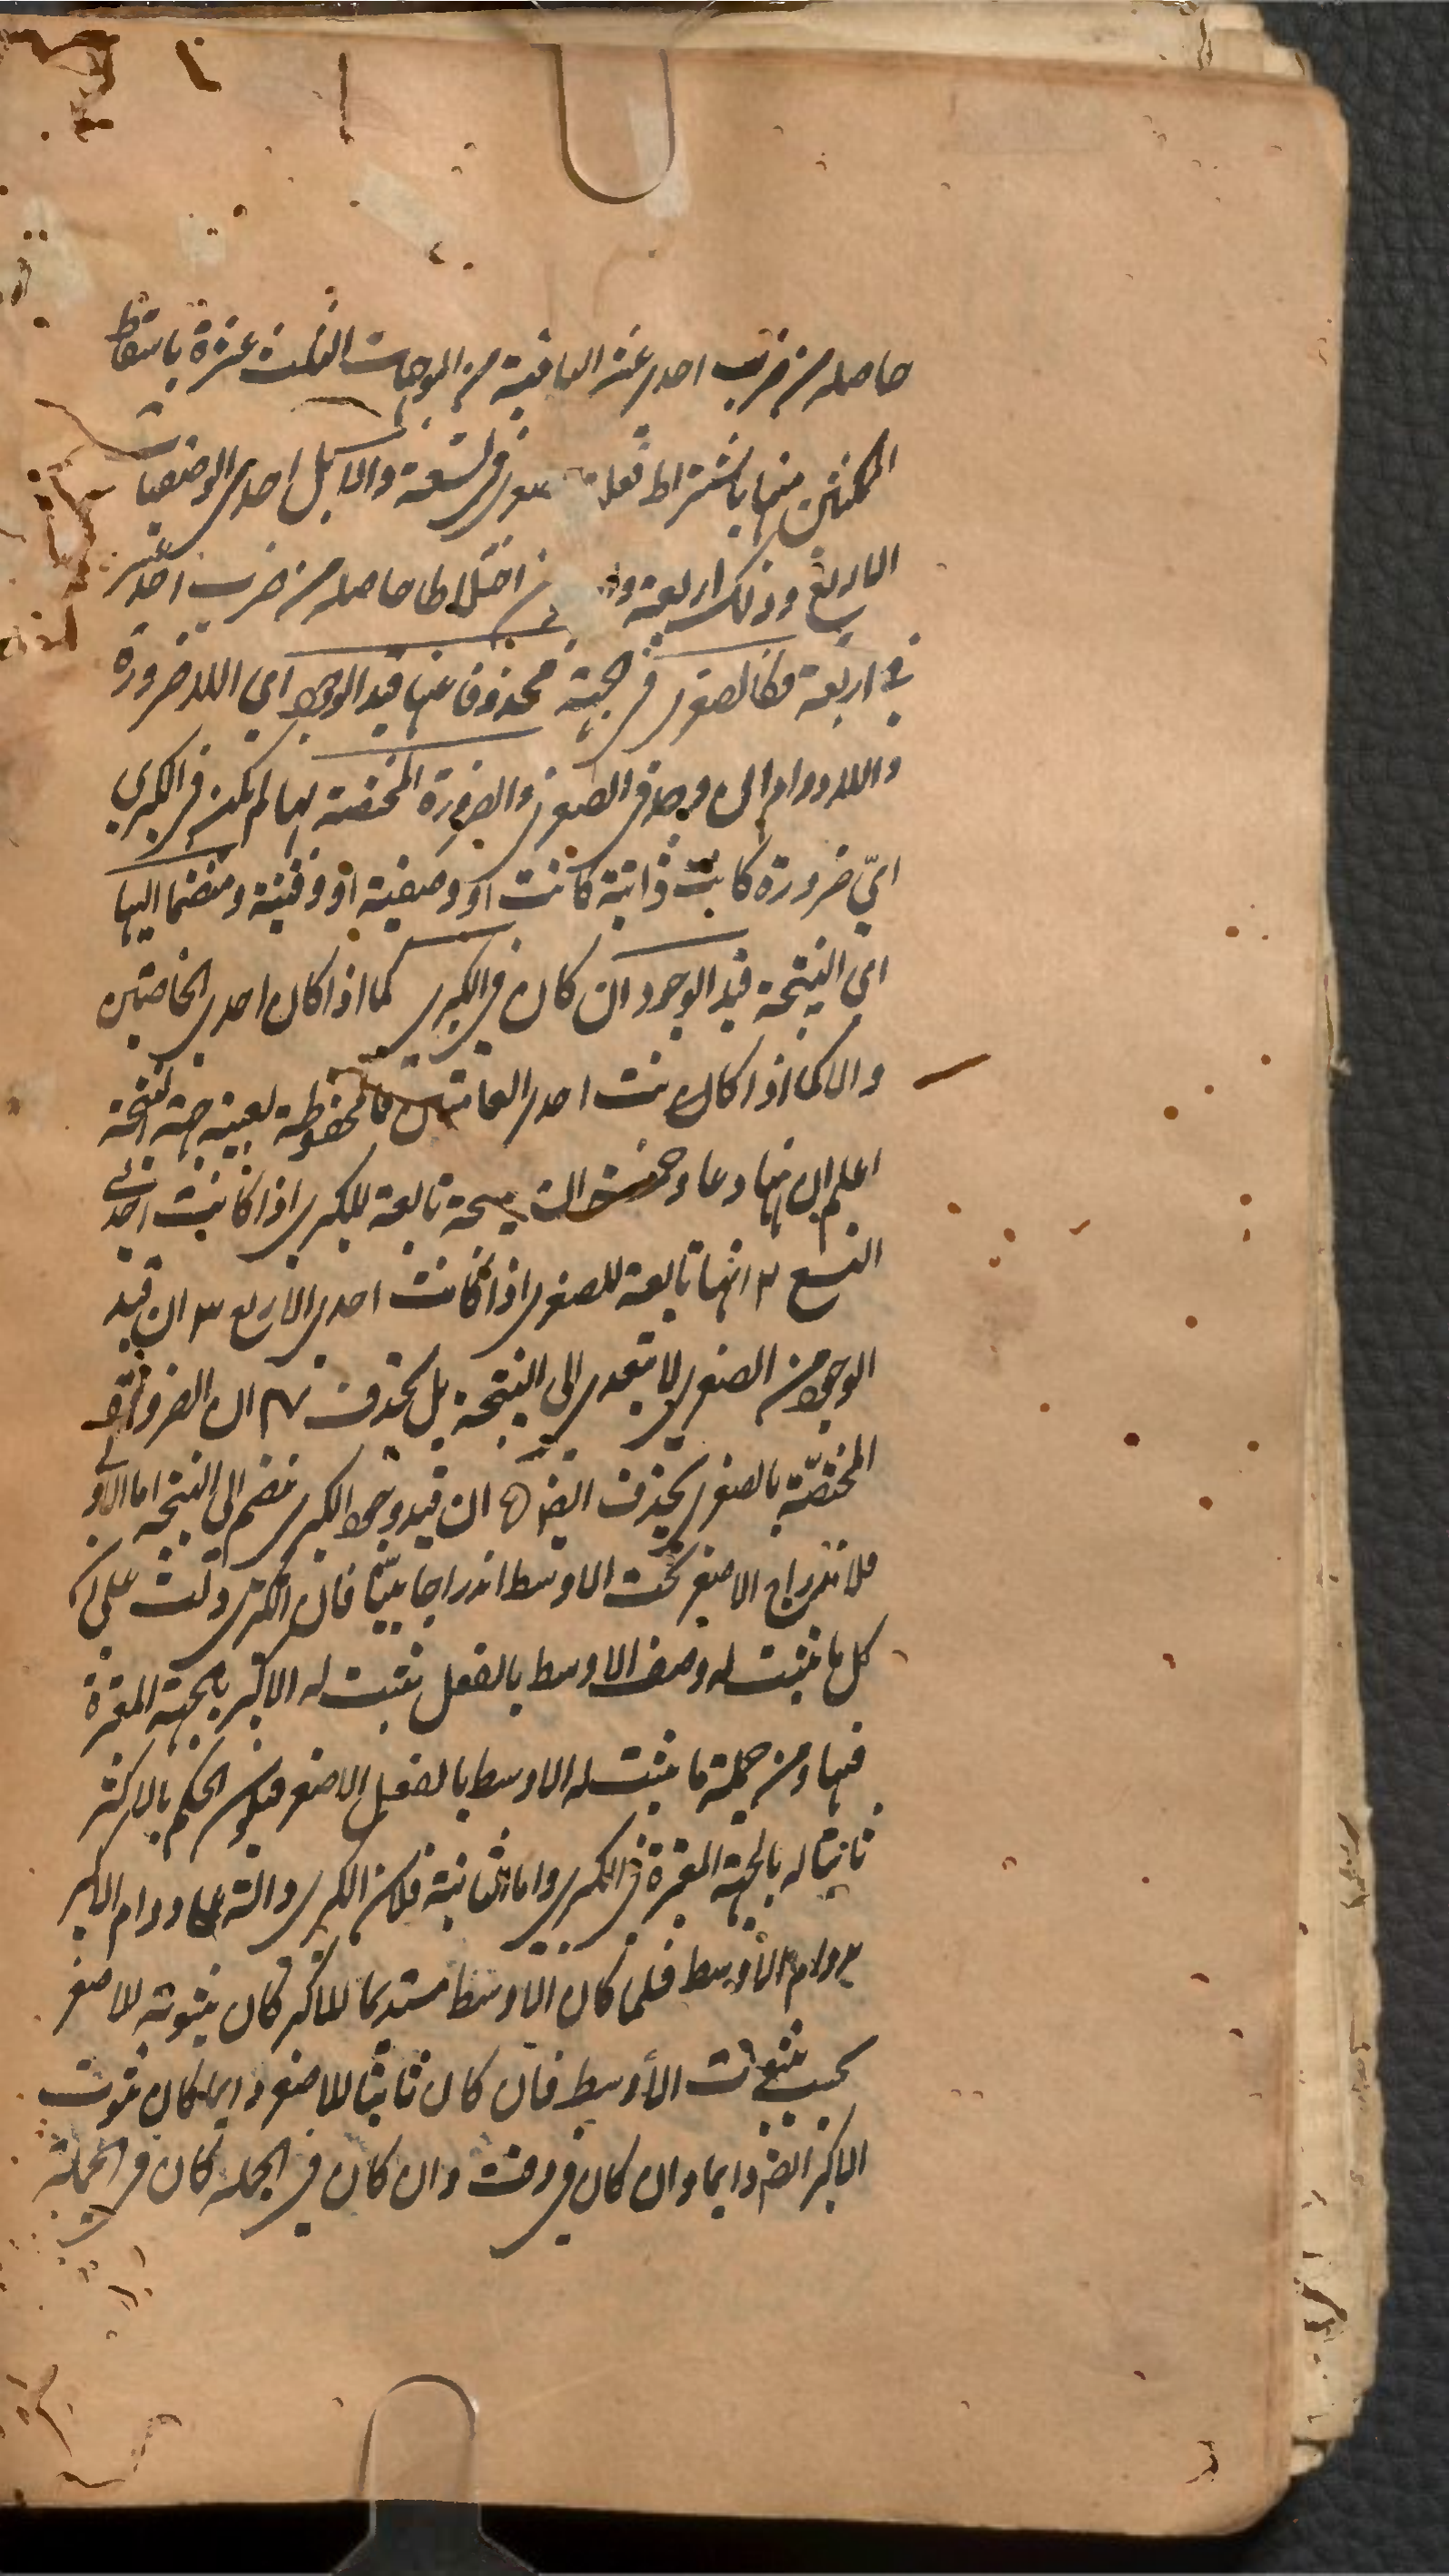 حاصله من ضرب احدى عشر الباقية من الموجهات الثلث عشرة باسقاط
الممكنتين منها باشتراط فعلية صغرى في تسعة والا بكل احدى الوصفيات
الاربع وذلك اربعة و اختلاطا حاصله من ضرب احد عشر
في اربعة فكالصغرى في جهة محذوفا عنها قيد الوجود اي اللاضرورة
واللادوام ان وجد في الصغرى والضرورة المختصة بها لم يكن في الكبرى
ايّ ضرورة كانت ذاتية كانت او وصفية او وقتية ومنضما اليها
اي النتيجة قيد الوجود ان كان في الكبرى كما اذا كان احدى الخاصتين
والا كما اذا كانت احدى العامتين فالمحفوظة بعينه جهة النتيجة
اعلم ان ههنا دعاوى خمسة النتيجة تابعة للكبرى اذا كانت احدى
التسع ٢ انها تابعة للصغرى اذا كانت احدى الاربع ٣ ان قيد
الوجود من الصغرى لا يتعدى الى النتيجة بل يحذف ٤ ان الضرورة
المختصّة بالصغرى يحذف ايضا ٥ ان قيد وجود الكبرى ينضم الى النتيجة اما الاولى
فلاندراج الاصغر تحت الاوسط اندراجا بيّنا فان الكبرى دلت على ان
كل ما يثبت له وصف الاوسط بالفعل يثبت له الاكبر بالجهة المعتبرة
فيها ومن جملة ما يثبت له الاوسط بالفعل الاصغر فيكون الحكم بالاكبر
ثابتا له بالجهة المعتبرة في الكبرى واما الثانية فلان الكبرى دالة على دوام الاكبر
بدوام الأوسط فلما كان الاوسط مستديما للاكبر كان ثبوته للاصغر
بحسب ثبوت الأوسط فان كان ثابتا للاصغر دايما كان ثبوت
الاكبر ايضا دايما وان كان في وقت وان كان في الجملة كان في الجملة